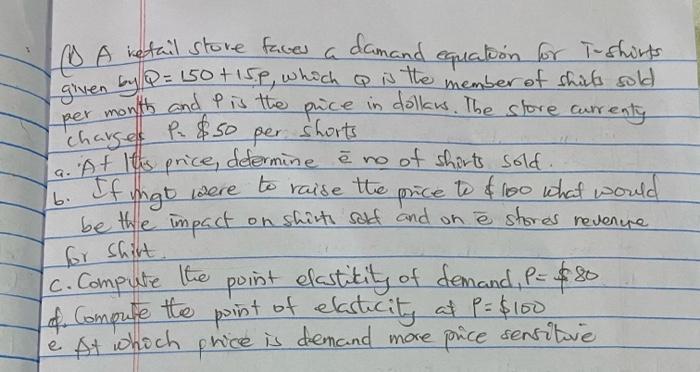 (1) A retail store faces a damand equation for T-shirts
given by Q = 150 + 15P, which Q is the member of shirts sold
per month and P is the price in dollars. The store currenty
charges P. $50 per shorts
a. At this price, determine ē no of shorts sold.
b. If mgt were to raise the price to $ 100 what would
be the impact on shirts sold and on ē stores revenue
for shirt.
c. Compute the point elasticity of demand, P = $80
d. Compute the point of elasticity at P = $100
e At which price is demand more price sensitive